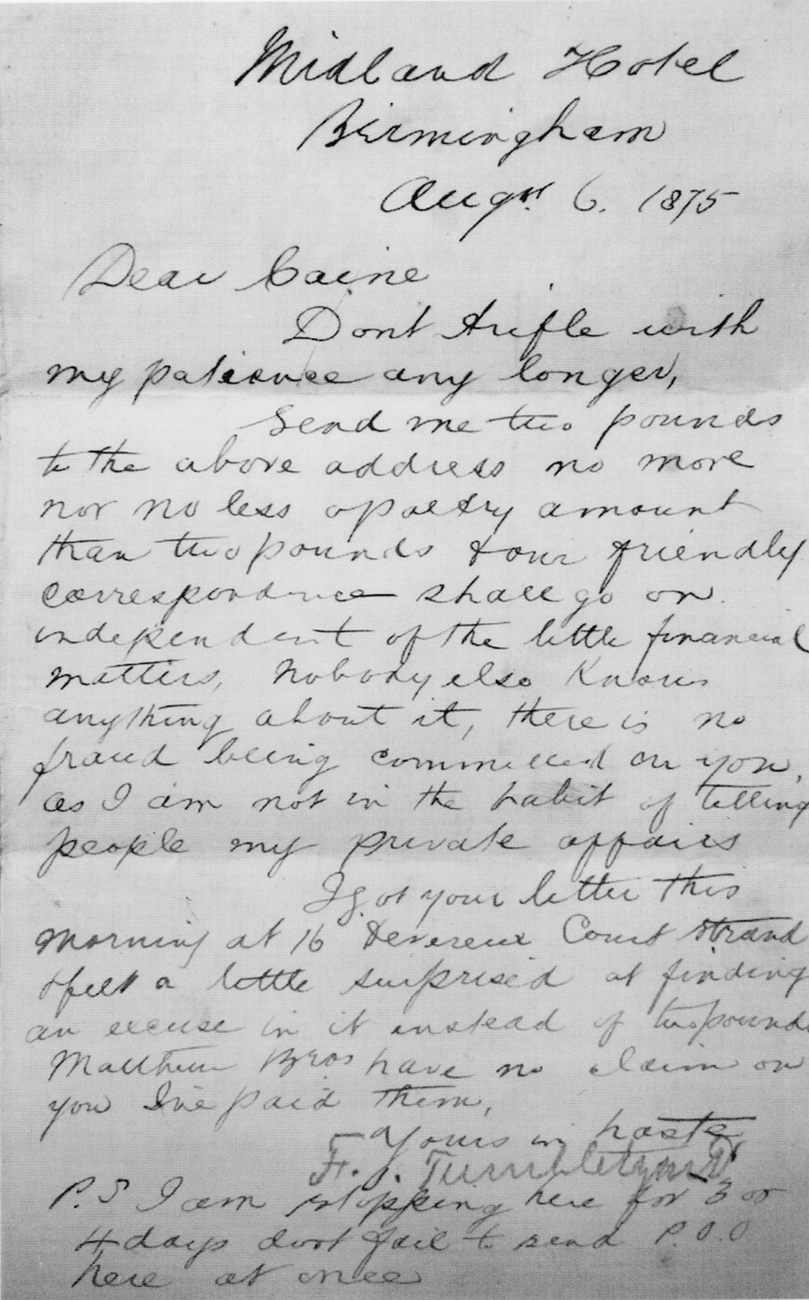 Midland Hotel
Birmingham
Augst 6. 1875
Dear Caine
Dont trifle with
my patience any longer,
Send me two pounds
to the above address no more
nor no less a paltry amount
than two pounds & our friendly
correspondence shall go on
independent of the little financial
matters, nobody else knows
anything about it, there is no
fraud being committed on you,
as I am not in the habit of telling
people my private affairs
I got your letter this
morning at 16 Devereux Court Strand
& felt a little surprised at finding
an excuse in it instead of two pounds
Matthew Bros have no claim on
you Ive paid them,
Yours in haste
F. J. Tumblety MD
P.S I am stopping here for 3 or
4 days dont fail to send P.O.O
here at once